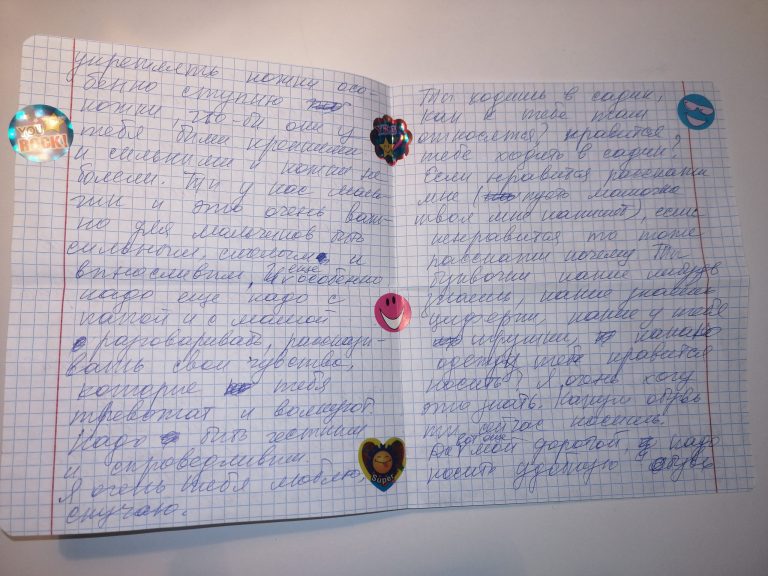 укреплять ножки осо-
бенно ступню
ножки, что-бы они у
тебя были крепкими
и сильными и ножки не
болели. Ты у нас маль-
чик и это очень важ-
но для мальчиков быть
сильным, смелым и
выносливым, И еще особенно
надо еще надо с
папой и с мамой
разговаривать, рассказы-
вать свои чувства,
которые тебя
тревожат и волнуют.
Надо быть честным
и справедливым.
Я очень тебя люблю,
скучаю.
Ты ходишь в садик,
как к тебе там
относятся? нравится
тебе ходить в садик?
Если нравится расскажи
мне (пусть мамочка
твоя мне напишет), если
ненравится то тоже
расскажи почему. Ты
буквочки какие нибудь
знаешь, какие знаешь
циферки, какие у тебя
игрушки, какую
одежду тебе нравится
носить? Я очень хочу
это знать. Какую обувь
ты сейчас носишь.
вот еще
мой дорогой, надо
носить удобную обувь
YOU ROCK!
Super